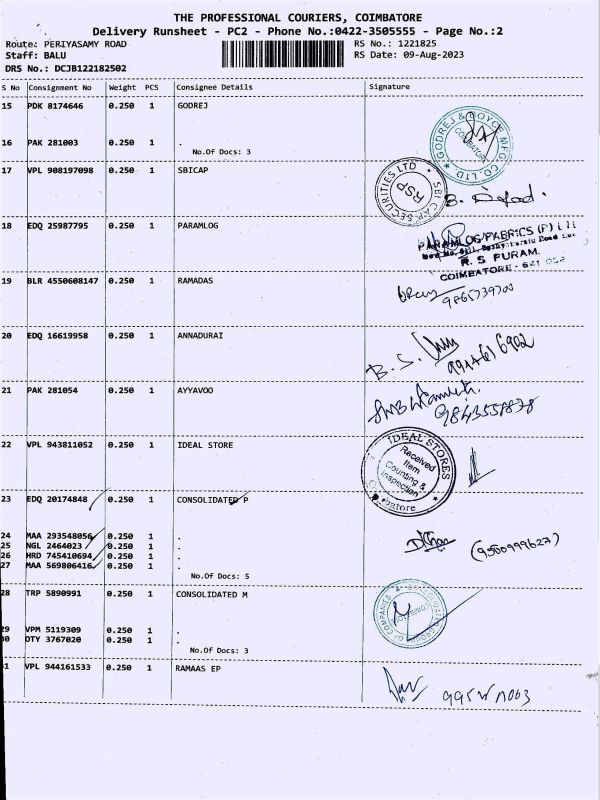 THE PROFESSIONAL COURIERS, COIMBATORE
Delivery Runsheet - PC2 - Phone No.:0422-3505555 - Page No.:2
Route: PERIYASAMY ROAD
Staff: BALU
DRS No.: DCJB122182502
RS No.: 1221825
RS Date: 09-Aug-2023
S No Consignment No Weight PCS Consignee Details Signature
15 PDK 8174646 0.250 1 GODREJ
16 PAK 281003 0.250 1 .
No.Of Docs: 3
GODREJ & BOYCE MFG CO. LTD
COIMBATORE
17 VPL 908197098 0.250 1 SBICAP
SBI CAP SECURITIES LTD
RSP
18 EDQ 25987795 0.250 1 PARAMLOG
PARAMLOG FABRICS (P) LTD
R. S PURAM.
COIMBATORE - 641 002
19 BLR 4550608147 0.250 1 RAMADAS
20 EDQ 16619958 0.250 1 ANNADURAI
B. S.
21 PAK 281054 0.250 1 AYYAVOO
22 VPL 943811052 0.250 1 IDEAL STORE
IDEAL STORES
Received
Item
Counting &
Inspection
Coimbatore
23 EDQ 20174848 0.250 1 CONSOLIDATED P
24 MAA 293548056 0.250 1 .
25 NGL 2464023 0.250 1 .
26 HRD 745410694 0.250 1 .
27 MAA 569806416 0.250 1 .
No.Of Docs: 5
(9500999627)
28 TRP 5890991 0.250 1 CONSOLIDATED M
29 VPM 5119309 0.250 1 .
30 DTY 3767020 0.250 1 .
No.Of Docs: 3
31 VPL 944161533 0.250 1 RAMAAS EP